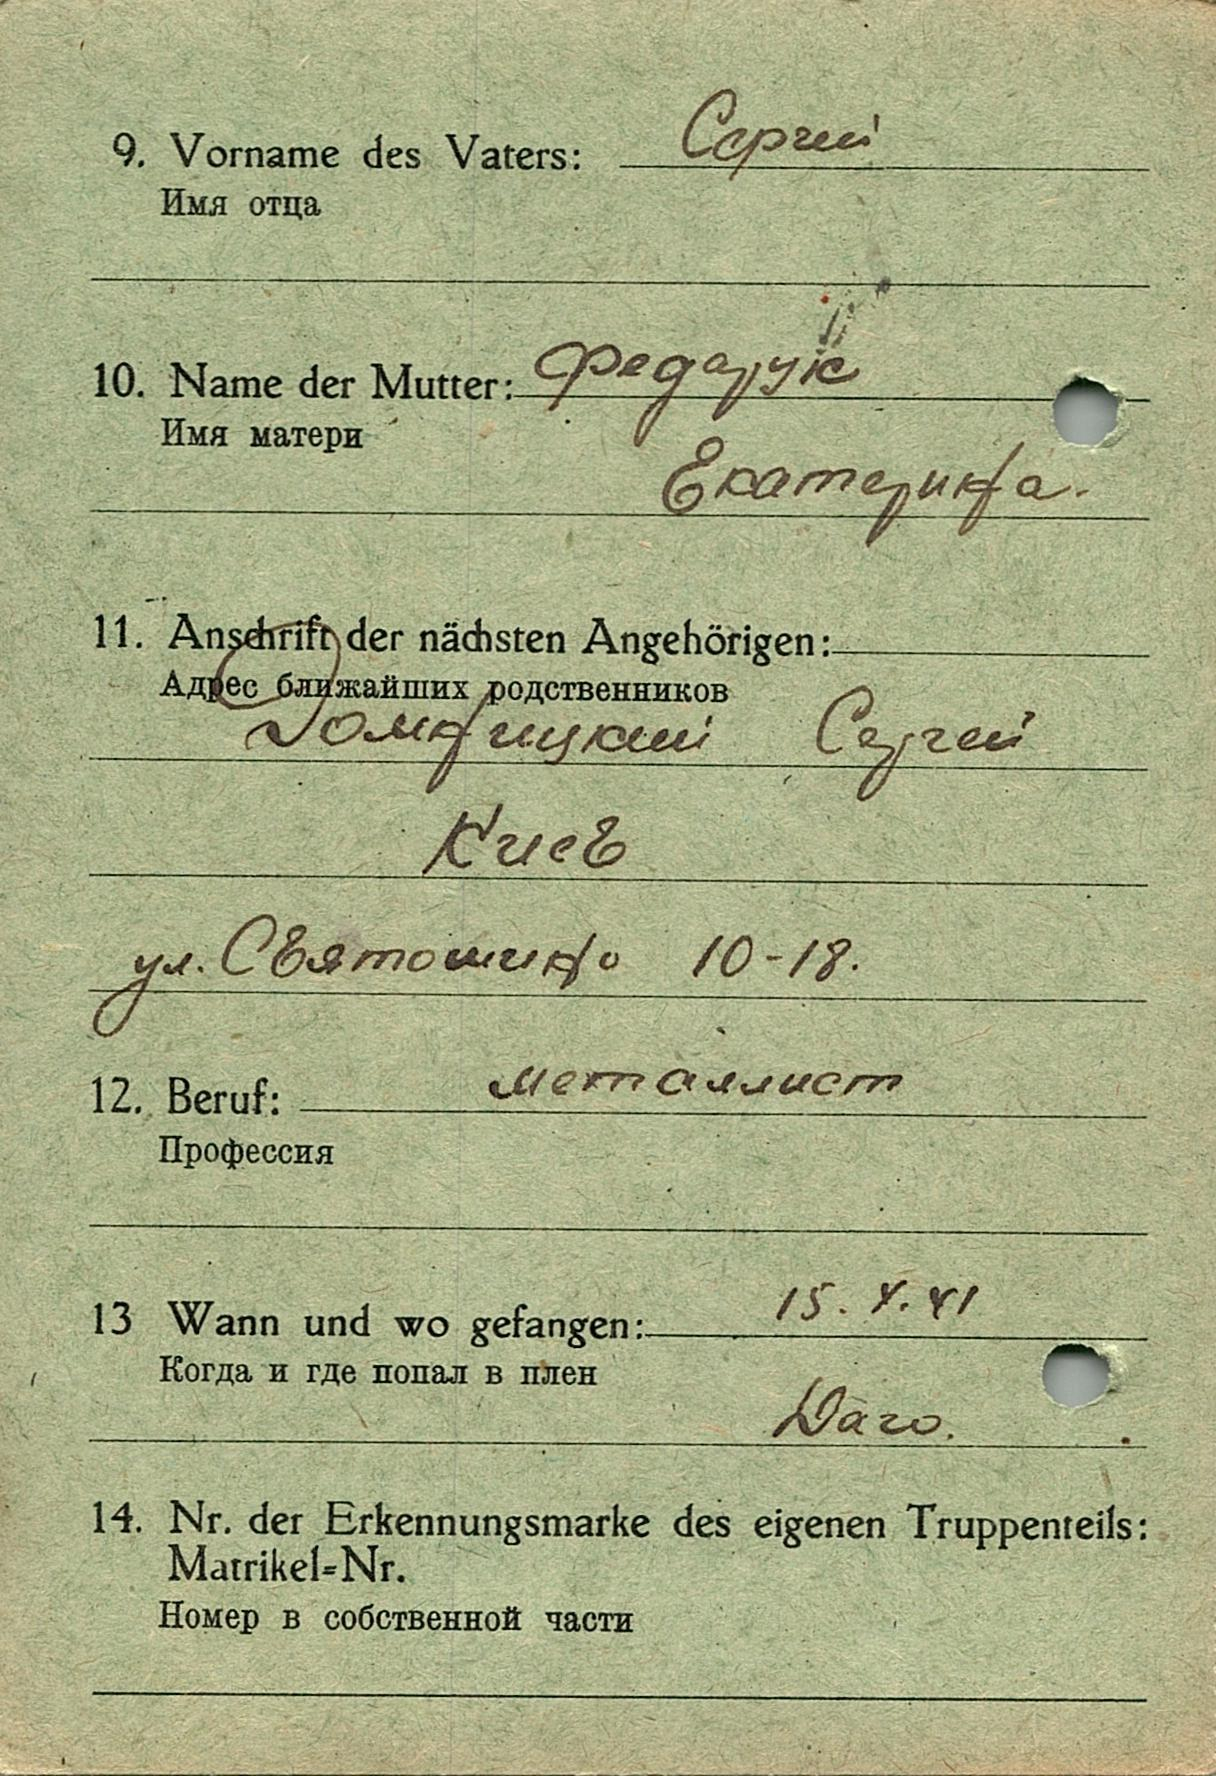 9. Vorname des Vaters: Сергей
Имя отца
10. Name der Mutter: Федарук
Имя матери
Екатерина.
11. Anschrift der nächsten Angehörigen:
Адрес ближайших родственников
Домницкий Сергей
Киев
ул. Святошино 10-18.
12. Beruf: металлист
Профессия
13 Wann und wo gefangen: 15. X. 41
Когда и где попал в плен
Даго.
14. Nr. der Erkennungsmarke des eigenen Truppenteils:
Matrikel=Nr.
Номер в собственной части